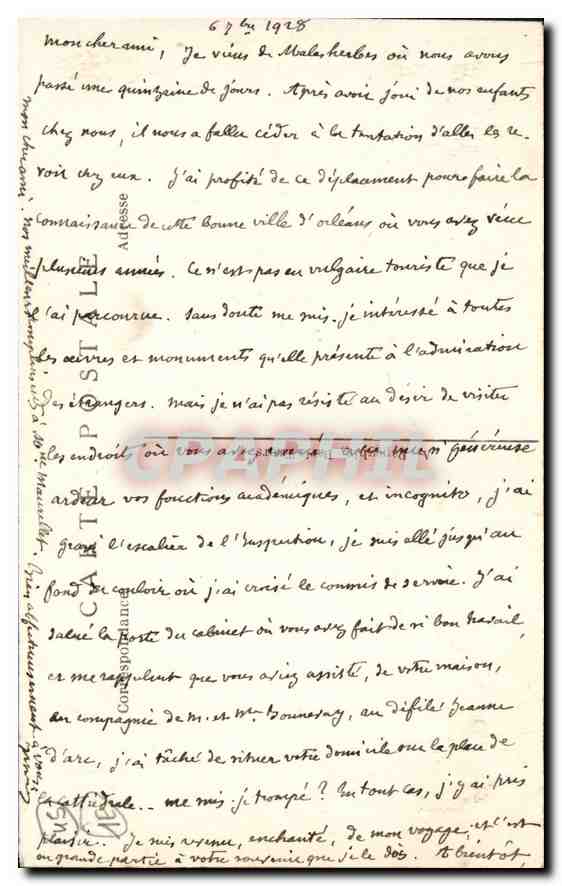 6 7bre 1928
mon cher ami, Je viens de Malesherbes où nous avons
passé une quinzaine de jours. Après avoir joui de nos enfants
chez nous, il nous a fallu céder à la tentation d'aller les re-
voir chez eux. J'ai profité de ce déplacement pour faire la
connaissance de cette bonne ville d'Orléans où vous avez vécu
plusieurs années. Ce n'est pas en vulgaire touriste que je
l'ai parcourue. Sans doute me suis-je intéressé à toutes
les œuvres et monuments qu'elle présente à l'admiration
des étrangers. mais je n'ai pas résisté au désir de visiter
les endroits où vous avez exercé avec une si généreuse
ardeur vos fonctions académiques, et incognito, j'ai
gravi l'escalier de l'Inspection, je suis allé jusqu'au
fond du couloir où j'ai croisé le commis de service. J'ai
salué la porte du cabinet où vous avez fait de si bon travail
et me rappelant que vous aviez assisté, de votre maison,
en compagnie de M. et Mme au défilé Jeanne
d'arc, j'ai tâché de situer votre domicile sur la place de
la cathédrale... me suis-je trompé? En tout cas, j'y ai pris
plaisir. Je suis revenu, enchanté, de mon voyage, et c'est
en grande partie à votre souvenir que je le dois. A bientôt,
mon cher ami. nos meilleurs à Mme Maurellet. Bien affectueusement à vous
CARTE POSTALE
Correspondance
Adresse
CPAPHIL